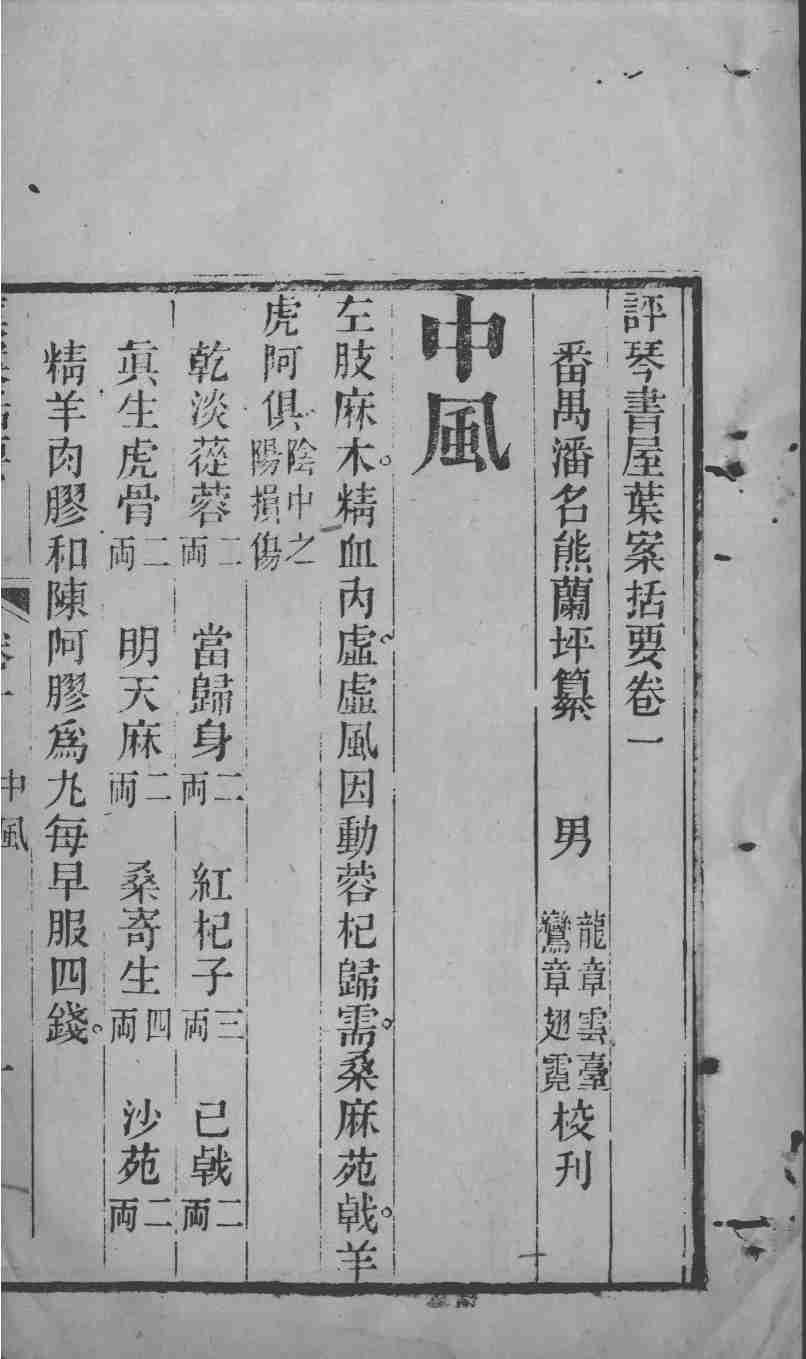 評琴書屋葉案括要卷一
番禺潘名熊蘭坪纂 男 龍章雲臺 鸞章翅霓 校刊
中風
左肢麻木。精血內虛。虛風因動蓉杞歸需。桑麻苑戟。羊
虎阿俱 陰中之陽損傷
乾淡蓯蓉二両 當歸身二両 紅杞子三両 已戟二両
真生虎骨二両 明天麻二両 桑寄生四両 沙苑二両
精羊肉膠和陳阿膠爲九每早服四錢。
卷一 中風 一